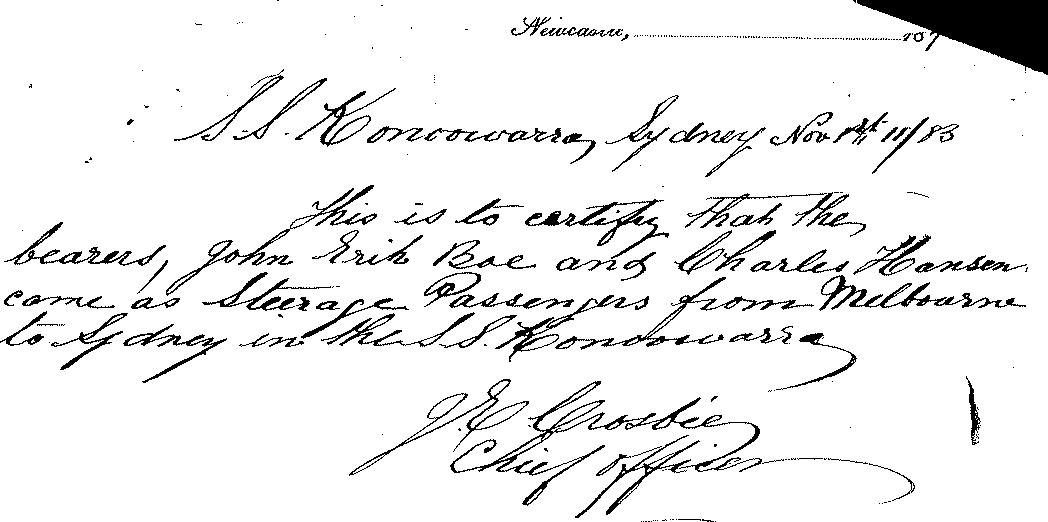 Newcastle, 187
S.S. Konoowarra, Sydney Nov 1st 11/83
This is to certify that the
bearers, John Erik Boe and Charles Hansen
came as Steerage Passengers from Melbourne
to Sydney in the S.S. Konoowarra
J.E. Crosbie
Chief Officer